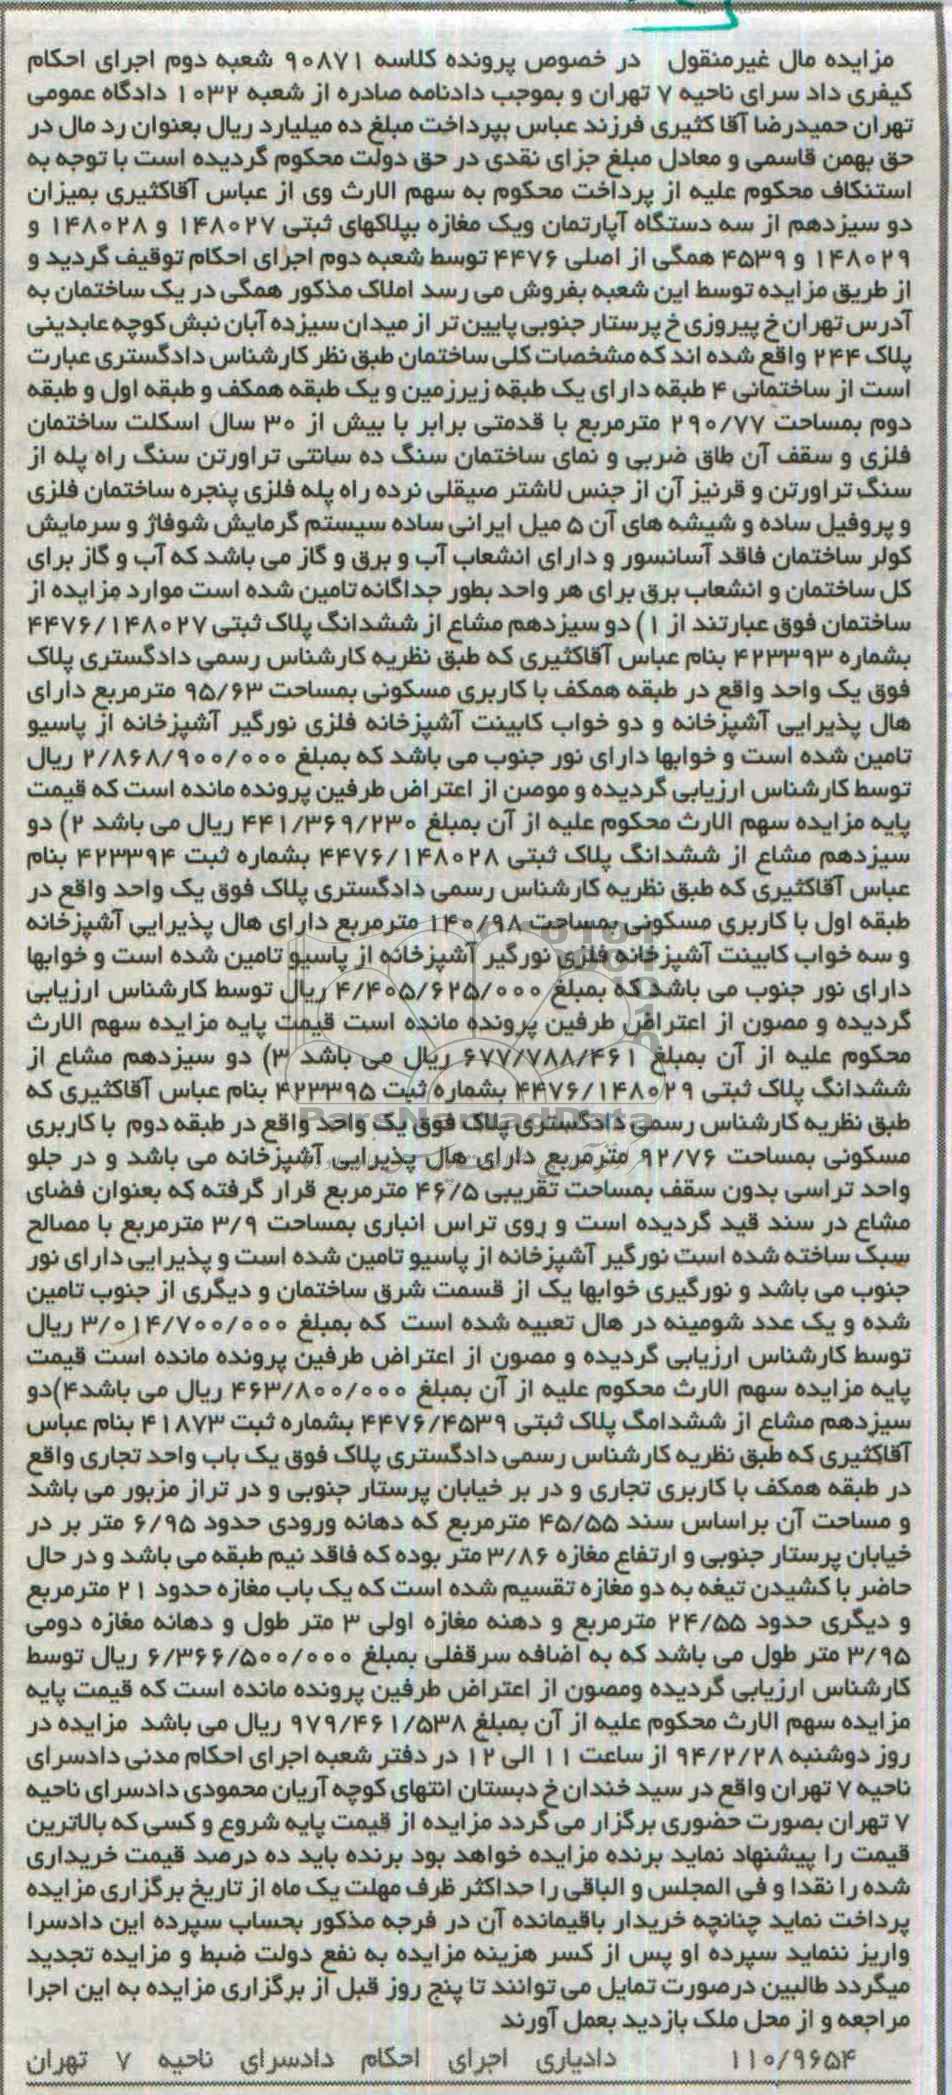 مزایده مال غیرمنقول در خصوص پرونده کلاسه ۹۰۸۷۱ شعبه دوم اجرای احکام
کیفری داد سرای ناحیه ۷ تهران و بموجب دادنامه صادره از شعبه ۱۰۳۲ دادگاه عمومی
تهران حمیدرضا آقا کثیری فرزند عباس بپرداخت مبلغ ده میلیارد ریال بعنوان رد مال در
حق بهمن قاسمی و معادل مبلغ جزای نقدی در حق دولت محکوم گردیده است با توجه به
استنکاف محکوم علیه از پرداخت محکوم به سهم الارث وی از عباس آقاکثیری بمیزان
دو سیزدهم از سه دستگاه آپارتمان ویک مغازه بپلاکهای ثبتی ۱۴۸۰۲۷ و ۱۴۸۰۲۸ و
۱۴۸۰۲۹ و ۴۵۳۹ همگی از اصلی ۴۴۷۶ توسط شعبه دوم اجرای احکام توقیف گردید و
از طریق مزایده توسط این شعبه بفروش می رسد املاک مذکور همگی در یک ساختمان به
آدرس تهران خ پیروزی خ پرستار جنوبی پایین تر از میدان سیزده آبان نبش کوچه عابدینی
پلاک ۲۴۴ واقع شده اند که مشخصات کلی ساختمان طبق نظر کارشناس دادگستری عبارت
است از ساختمانی ۴ طبقه دارای یک طبقه زیرزمین و یک طبقه همکف و طبقه اول و طبقه
دوم بمساحت ۲۹۰/۷۷ مترمربع با قدمتی برابر با بیش از ۳۰ سال اسکلت ساختمان
فلزی و سقف آن طاق ضربی و نمای ساختمان سنگ ده سانتی تراورتن سنگ راه پله از
سنگ تراورتن و قرنیز آن از جنس لاشتر صیقلی نرده راه پله فلزی پنجره ساختمان فلزی
و پروفیل ساده و شیشه های آن ۵ میل ایرانی ساده سیستم گرمایش شوفاژ و سرمایش
کولر ساختمان فاقد آسانسور و دارای انشعاب آب و برق و گاز می باشد که آب و گاز برای
کل ساختمان و انشعاب برق برای هر واحد بطور جداگانه تامین شده است موارد مزایده از
ساختمان فوق عبارتند از ۱) دو سیزدهم مشاع از ششدانگ پلاک ثبتی ۴۴۷۶/۱۴۸۰۲۷
بشماره ۴۲۳۳۹۳ بنام عباس آقاکثیری که طبق نظریه کارشناس رسمی دادگستری پلاک
فوق یک واحد واقع در طبقه همکف با کاربری مسکونی بمساحت ۹۵/۶۳ مترمربع دارای
هال پذیرایی آشپزخانه و دو خواب کابینت آشپزخانه فلزی نورگیر آشپزخانه از پاسیو
تامین شده است و خوابها دارای نور جنوب می باشد که بمبلغ ۲/۸۶۸/۹۰۰/۰۰۰ ریال
توسط کارشناس ارزیابی گردیده و موصن از اعتراض طرفین پرونده مانده است که قیمت
پایه مزایده سهم الارث محکوم علیه از آن بمبلغ ۴۴۱/۳۶۹/۲۳۰ ریال می باشد ۲) دو
سیزدهم مشاع از ششدانگ پلاک ثبتی ۴۴۷۶/۱۴۸۰۲۸ بشماره ثبت ۴۲۳۳۹۴ بنام
عباس آقاکثیری که طبق نظریه کارشناس رسمی دادگستری پلاک فوق یک واحد واقع در
طبقه اول با کاربری مسکونی بمساحت ۱۴۰/۹۸ مترمربع دارای هال پذیرایی آشپزخانه
و سه خواب کابینت آشپزخانه فلزی نورگیر آشپزخانه از پاسیو تامین شده است و خوابها
دارای نور جنوب می باشد که بمبلغ ۴/۴۰۵/۶۲۵/۰۰۰ ریال توسط کارشناس ارزیابی
گردیده و مصون از اعتراض طرفین پرونده مانده است قیمت پایه مزایده سهم الارث
محکوم علیه از آن بمبلغ ۶۷۷/۷۸۸/۴۶۱ ریال می باشد ۳) دو سیزدهم مشاع از
ششدانگ پلاک ثبتی ۴۴۷۶/۱۴۸۰۲۹ بشماره ثبت ۴۲۳۳۹۵ بنام عباس آقاکثیری که
ParsNamadData
طبق نظریه کارشناس رسمی دادگستری پلاک فوق یک واحد واقع در طبقه دوم با کاربری
مسکونی بمساحت ۹۲/۷۶ مترمربع دارای هال پذیرایی آشپزخانه می باشد و در جلو
واحد تراسی بدون سقف بمساحت تقریبی ۴۶/۵ مترمربع قرار گرفته که بعنوان فضای
مشاع در سند قید گردیده است و روی تراس انباری بمساحت ۳/۹ مترمربع با مصالح
سبک ساخته شده است نورگیر آشپزخانه از پاسیو تامین شده است و پذیرایی دارای نور
جنوب می باشد و نورگیری خوابها یک از قسمت شرق ساختمان و دیگری از جنوب تامین
شده و یک عدد شومینه در هال تعبیه شده است که بمبلغ ۳/۰۱۴/۷۰۰/۰۰۰ ریال
توسط کارشناس ارزیابی گردیده و مصون از اعتراض طرفین پرونده مانده است قیمت
پایه مزایده سهم الارث محکوم علیه از آن بمبلغ ۴۶۳/۸۰۰/۰۰۰ ریال می باشد۴)دو
سیزدهم مشاع از ششدامگ پلاک ثبتی ۴۴۷۶/۴۵۳۹ بشماره ثبت ۴۱۸۷۳ بنام عباس
آقاکثیری که طبق نظریه کارشناس رسمی دادگستری پلاک فوق یک باب واحد تجاری واقع
در طبقه همکف با کاربری تجاری و در بر خیابان پرستار جنوبی و در تراز مزبور می باشد
و مساحت آن براساس سند ۴۵/۵۵ مترمربع که دهانه ورودی حدود ۶/۹۵ متر بر در
خیابان پرستار جنوبی و ارتفاع مغازه ۳/۸۶ متر بوده که فاقد نیم طبقه می باشد و در حال
حاضر با کشیدن تیغه به دو مغازه تقسیم شده است که یک باب مغازه حدود ۲۱ مترمربع
و دیگری حدود ۲۴/۵۵ مترمربع و دهنه مغازه اولی ۳ متر طول و دهانه مغازه دومی
۳/۹۵ متر طول می باشد که به اضافه سرقفلی بمبلغ ۶/۳۶۶/۵۰۰/۰۰۰ ریال توسط
کارشناس ارزیابی گردیده ومصون از اعتراض طرفین پرونده مانده است که قیمت پایه
مزایده سهم الارث محکوم علیه از آن بمبلغ ۹۷۹/۴۶۱/۵۳۸ ریال می باشد مزایده در
روز دوشنبه ۹۴/۲/۲۸ از ساعت ۱۱ الی ۱۲ در دفتر شعبه اجرای احکام مدنی دادسرای
ناحیه ۷ تهران واقع در سید خندان خ دبستان انتهای کوچه آریان محمودی دادسرای ناحیه
۷ تهران بصورت حضوری برگزار می گردد مزایده از قیمت پایه شروع و کسی که بالاترین
قیمت را پیشنهاد نماید برنده مزایده خواهد بود برنده باید ده درصد قیمت خریداری
شده را نقدا و فی المجلس و الباقی را حداکثر ظرف مهلت یک ماه از تاریخ برگزاری مزایده
پرداخت نماید چنانچه خریدار باقیمانده آن در فرجه مذکور بحساب سپرده این دادسرا
واریز ننماید سپرده او پس از کسر هزینه مزایده به نفع دولت ضبط و مزایده تجدید
میگردد طالبین درصورت تمایل می توانند تا پنج روز قبل از برگزاری مزایده به این اجرا
مراجعه و از محل ملک بازدید بعمل آورند
۱۱۰/۹۶۵۴ دادیاری اجرای احکام دادسرای ناحیه ۷ تهران